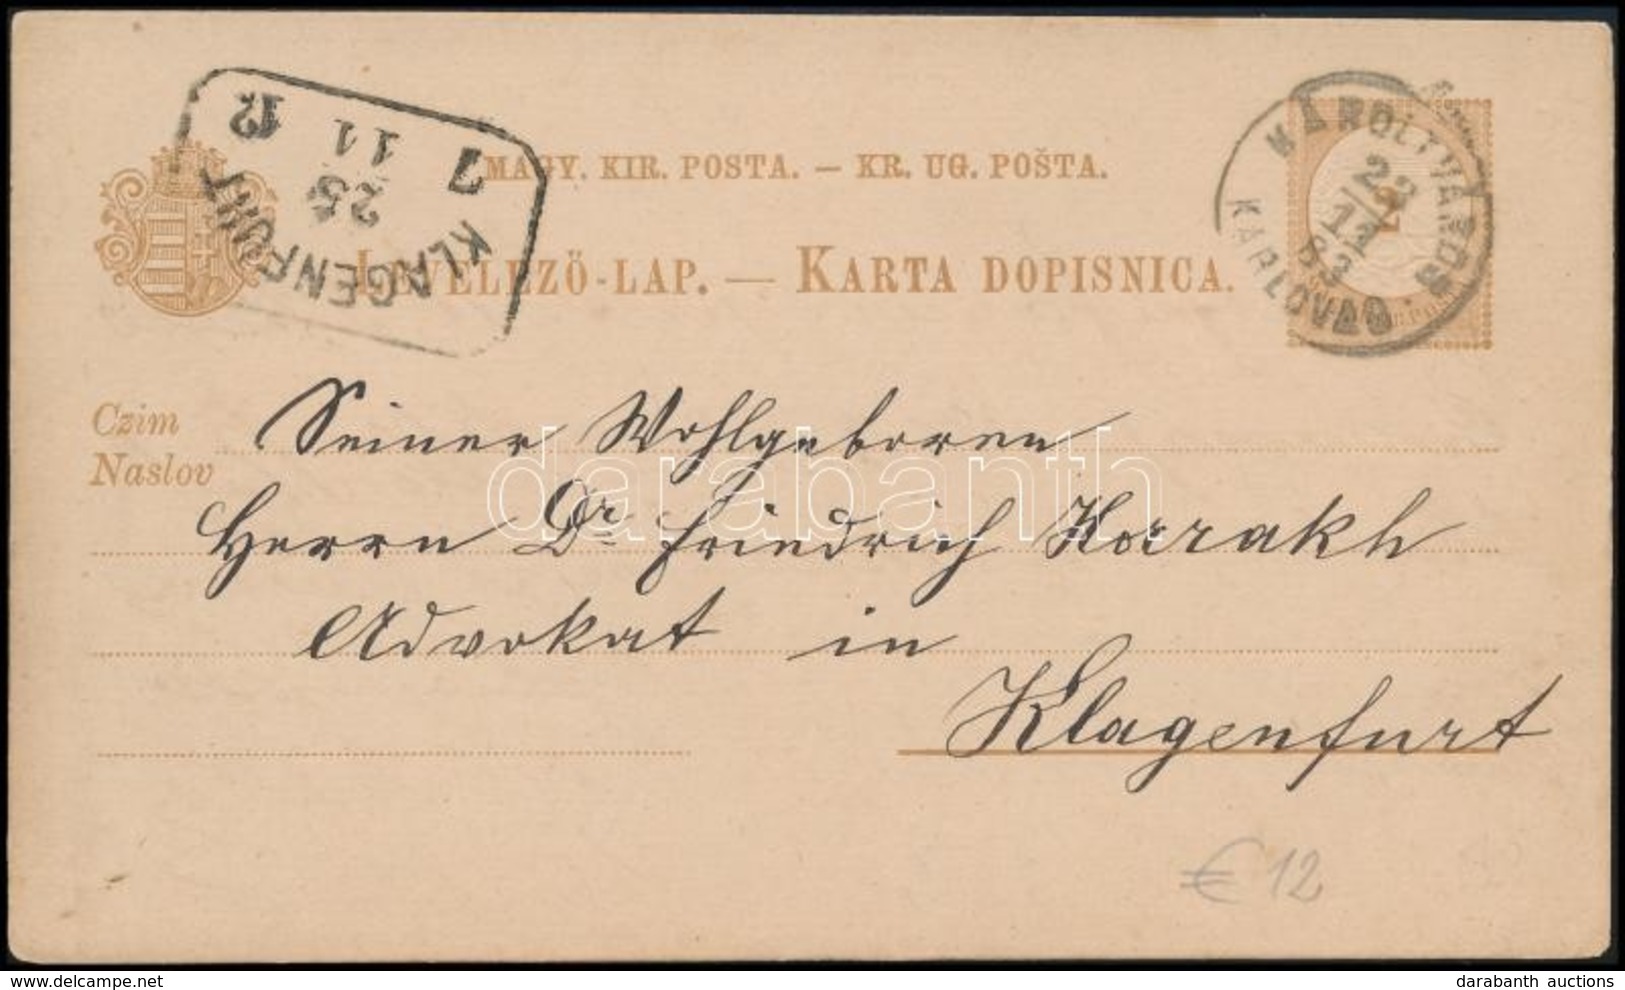 MAGY. KIR. POSTA. — KR. UG. POŠTA.
LEVELEZŐ-LAP. — KARTA DOPISNICA.
KLAGENFURT
25
11
12
1
KÁROLYVÁROS
22
11
83
KARLOVAC
2
Czim
Naslov
Seiner Wohlgeboren
Herrn Dr Friedrich Korrakh
Advokat in
Klagenfurt
€ 12
darabanth
darabanth auctions